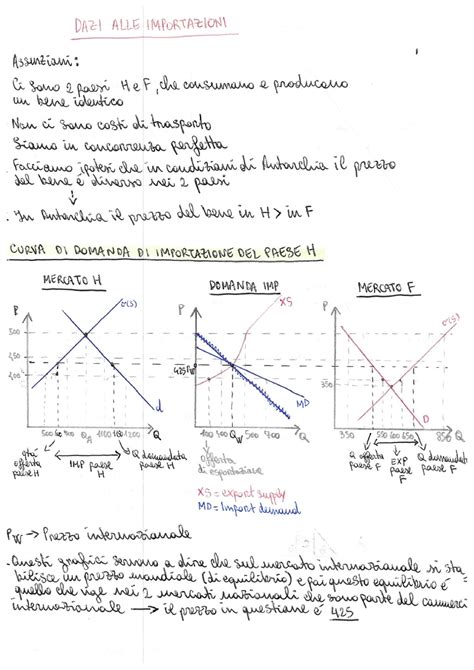 DAZI ALLE IMPORTAZIONI
Assunzioni:
Ci sono 2 paesi H e F, che consumano e producono
un bene identico
Non ci sono costi di trasporto
Siamo in concorrenza perfetta
Facciamo ipotesi che in condizioni di Autarchia il prezzo
del bene è diverso nei 2 paesi
↓
. In Autarchia il prezzo del bene in H > in F
CURVA DI DOMANDA DI IMPORTAZIONE DEL PAESE H
MERCATO H DOMANDA IMP MERCATO F
XS
P P P
500
350
d MD D
QA Q QW Q Q
qtà offerta paese H
IMP paese H
Q domandata paese H
offerta di esportazione
Q offerta paese F
EXP paese F
Q domandata paese F
XS = export supply
MD = Import demand
PW → Prezzo internazionale
. Questi grafici servono a dire che sul mercato internazionale si sta
bilisce un prezzo mondiale (di equilibrio) e poi questo equilibrio è
quello che vige nei 2 mercati nazionali che sono parte del commerci
internazionale → il prezzo in questione é 425